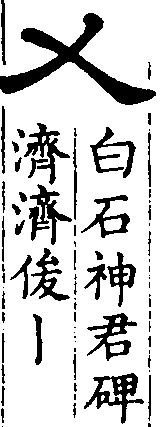 乂
白石神君碑
濟濟俊丨